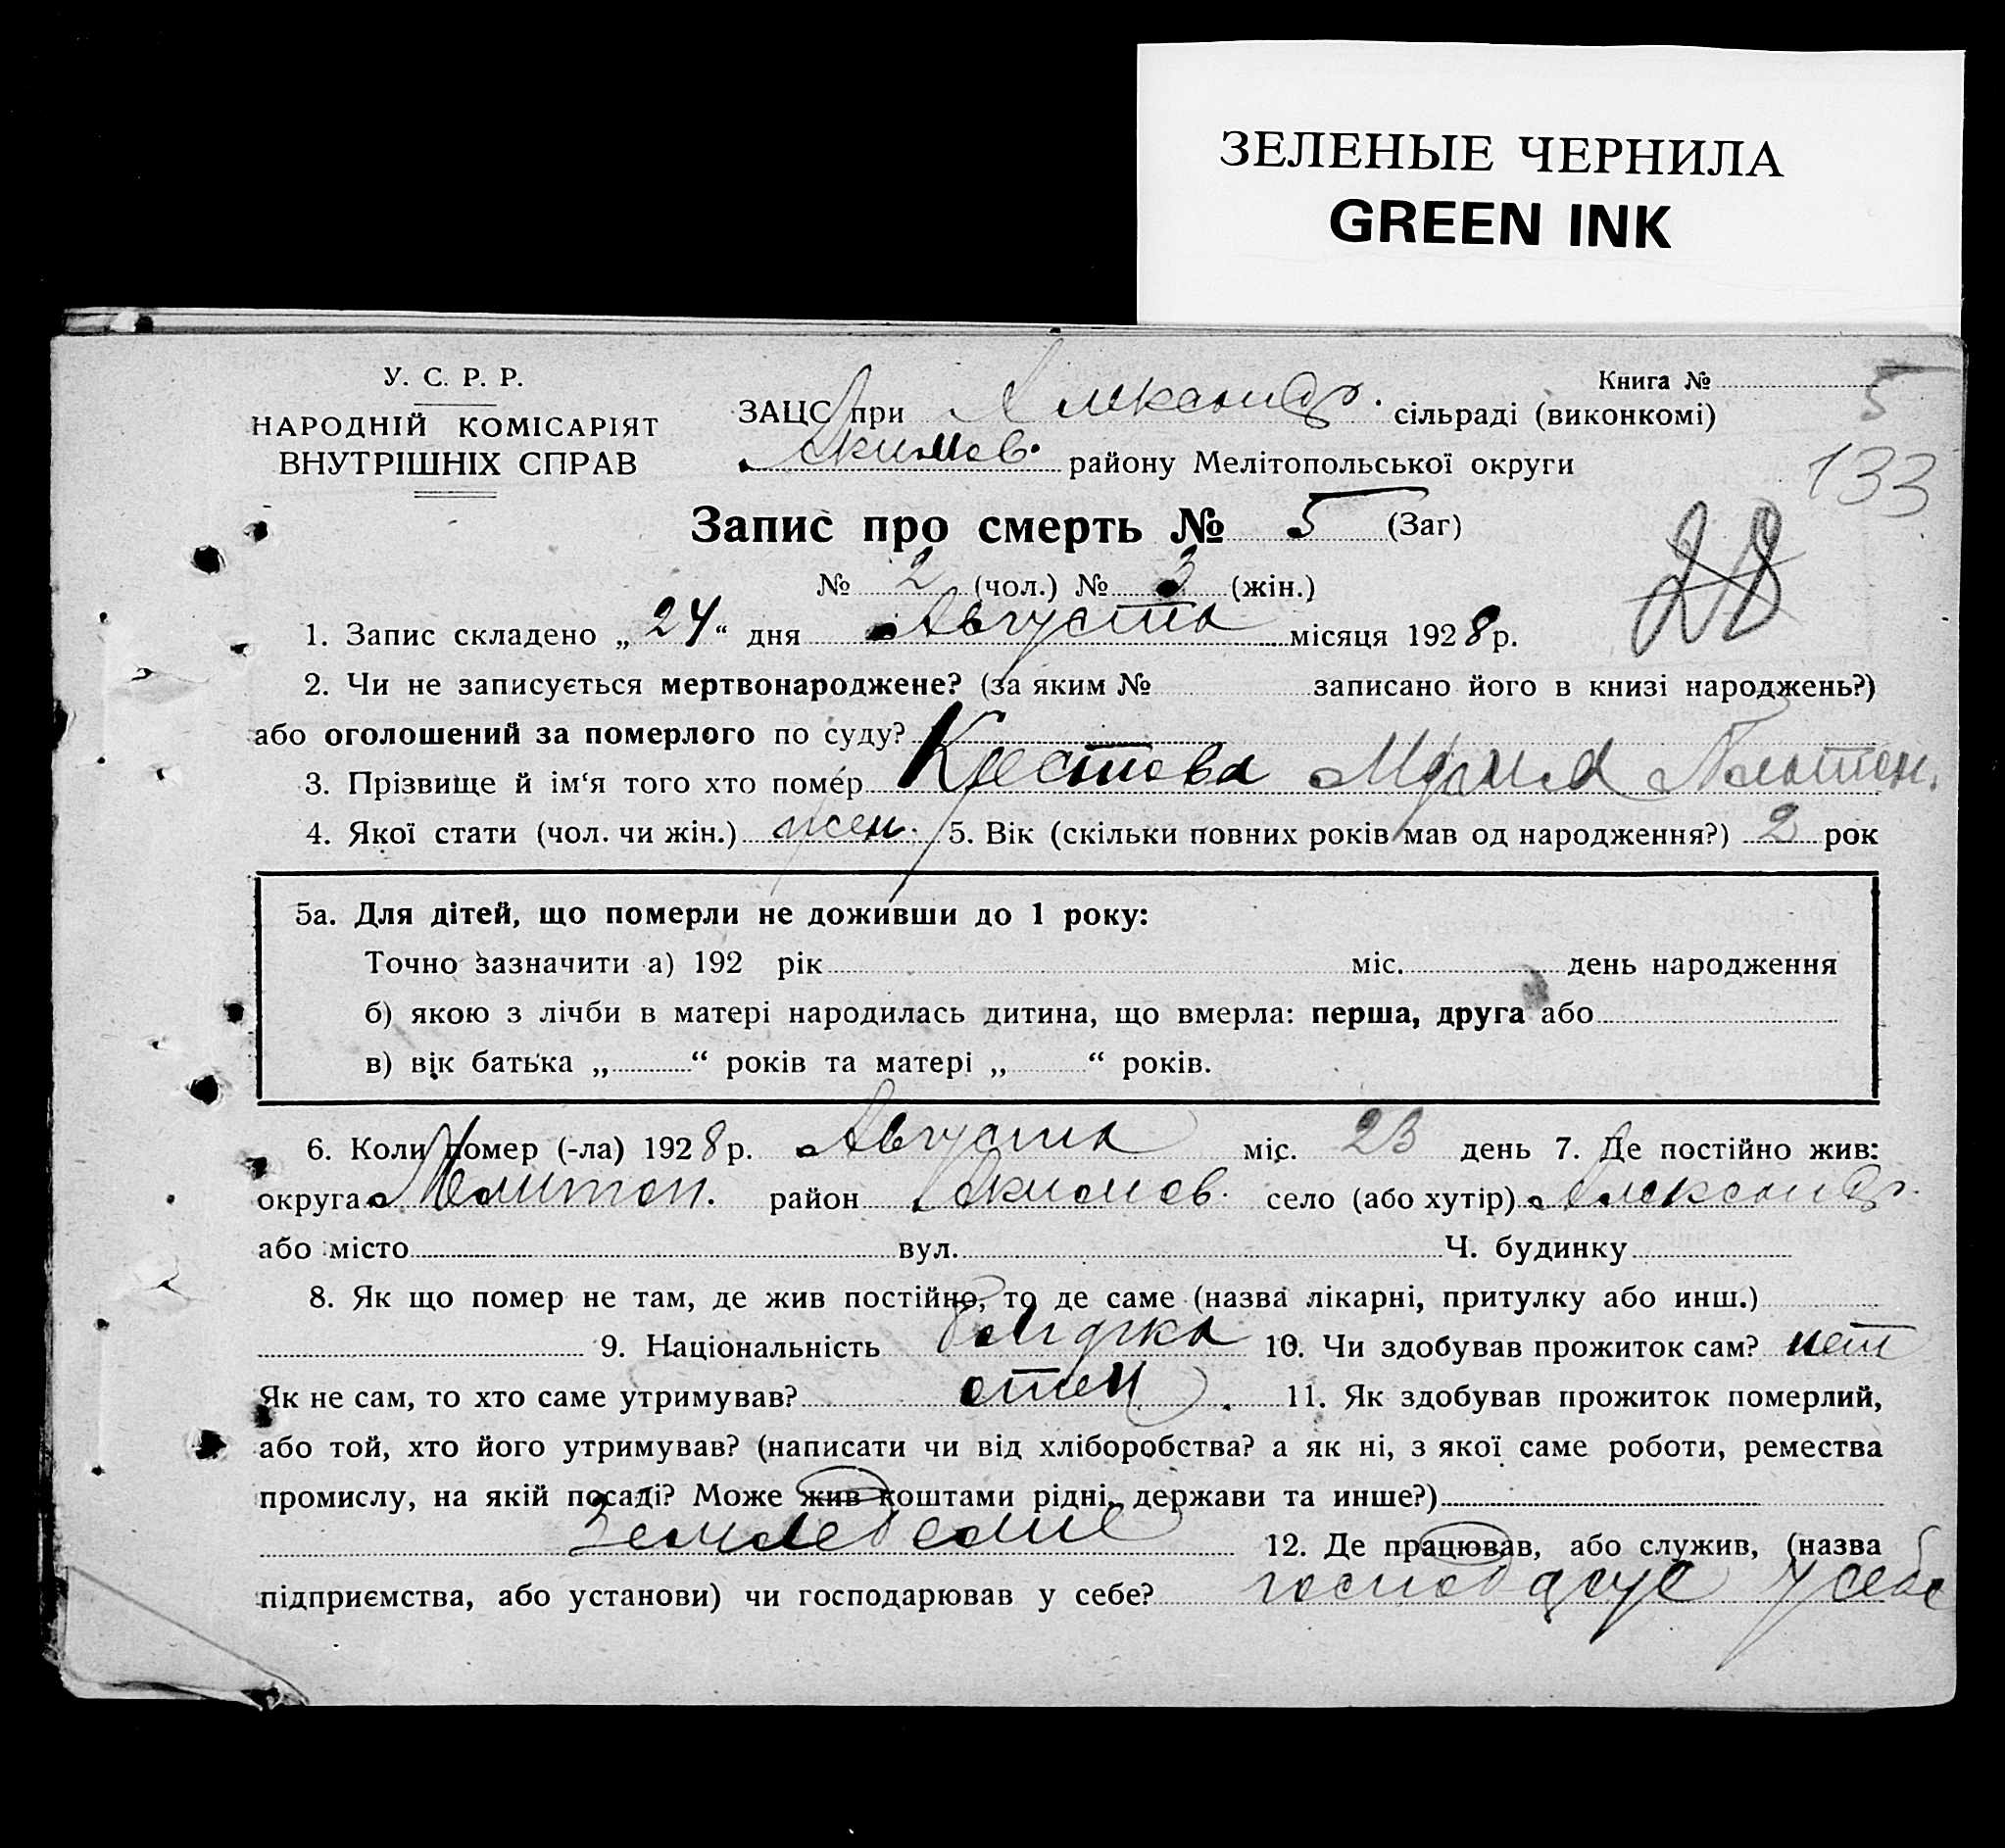 ЗЕЛЕНЫЕ ЧЕРНИЛА
GREEN INK
У. С. Р. Р.
НАРОДНІЙ КОМІСАРІЯТ
ВНУТРІШНІХ СПРАВ
Книга №
5
ЗАЦС при Александр. сільраді (виконкомі)
Акимов. району Мелітопольської округи
133
Запис про смерть № 5 (Заг)
28
№ 2 (чол.) № 3 (жін.)
1. Запис складено „24“ дня Августа місяця 1928 р.
2. Чи не записується мертвонароджене? (за яким № записано його в книзі народжень?)
або оголошений за померлого по суду?
3. Прізвище й ім‘я того хто помер Крестова Мария Платон.
4. Якої стати (чол. чи жін.) жен. 5. Вік (скільки повних років мав од народження?) 2 рок
5а. Для дітей, що померли не доживши до 1 року:
Точно зазначити а) 192 рік міс. день народження
б) якою з лічби в матері народилась дитина, що вмерла: перша, друга або
в) вік батька „ “ років та матері „ “ років.
6. Коли помер (-ла) 1928 р. Августа міс. 23 день 7. Де постійно жив:
округа Мелитоп. район Акимов. село (або хутір) Александр.
або місто вул. Ч. будинку
8. Як що помер не там, де жив постійно, то де саме (назва лікарні, притулку або инш.)
9. Національність болгарка 10. Чи здобував прожиток сам? нет
Як не сам, то хто саме утримував? отец 11. Як здобував прожиток померлий,
або той, хто його утримував? (написати чи від хліборобства? а як ні, з якої саме роботи, ремества
промислу, на якій посаді? Може жив коштами рідні, держави та инше?)
Земледелие 12. Де працював, або служив, (назва
підприємства, або установи) чи господарював у себе? господарує у себе